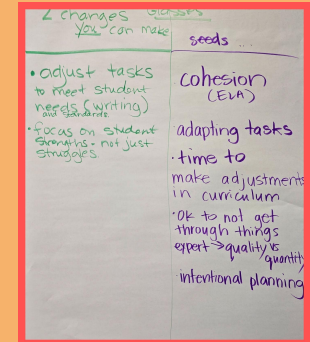 2 changes
you can make
• adjust tasks
to meet student
needs (writing)
and standards
• focus on student
strengths - not just
struggles
seeds ...
cohesion
(ELA)
adapting tasks
• time to
make adjustments
in curriculum
• OK to not get
through things
expert → quality vs
quantity
• intentional planning